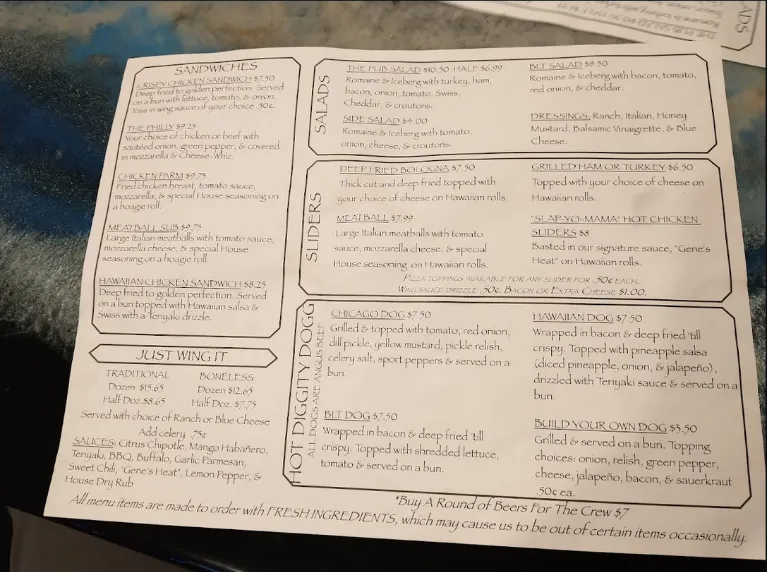 SANDWICHES
CRISPY CHICKEN SANDWICH $7.50
Deep fried to golden perfection. Served
on a bun with lettuce, tomato, & onion.
Toss in wing sauce of your choice .50¢.
THE PHILLY $9.25
Your choice of chicken or beef with
sautéed onion, green pepper, & covered
in mozzarella & Cheese-Whiz.
CHICKEN PARM $9.75
Fried chicken breast, tomato sauce,
mozzarella, & special House seasoning on
a hoagie roll.
MEATBALL SUB $9.75
Large Italian meatballs with tomato sauce,
mozzarella cheese, & special House
seasoning on a hoagie roll.
HAWAIIAN CHICKEN SANDWICH $8.25
Deep fried to golden perfection. Served
on a bun topped with Hawaiian salsa &
Swiss with a Teriyaki drizzle.
JUST WING IT
TRADITIONAL
Dozen $15.65
Half Doz. $8.65
BONELESS
Dozen $12.65
Half Doz. $7.75
Served with choice of Ranch or Blue Cheese
Add celery .75¢
SAUCES: Citrus Chipotle, Mango Habañero,
Teriyaki, BBQ, Buffalo, Garlic Parmesan,
Sweet Chili, "Gene's Heat", Lemon Pepper, &
House Dry Rub
SALADS
THE PUB SALAD $10.50 HALF $6.99
Romaine & Iceberg with turkey, ham,
bacon, onion, tomato, Swiss,
Cheddar, & croutons.
SIDE SALAD $4.00
Romaine & Iceberg with tomato,
onion, cheese, & croutons.
BLT SALAD $8.50
Romaine & Iceberg with bacon, tomato,
red onion, & cheddar.
DRESSINGS: Ranch, Italian, Honey
Mustard, Balsamic Vinaigrette, & Blue
Cheese.
SLIDERS
DEEP FRIED BOLOGNA $7.50
Thick cut and deep fried topped with
your choice of cheese on Hawaiian rolls.
MEATBALL $7.99
Large Italian meatballs with tomato
sauce, mozzarella cheese, & special
House seasoning on Hawaiian rolls.
GRILLED HAM OR TURKEY $6.50
Topped with your choice of cheese on
Hawaiian rolls.
"SLAP-YO-MAMA" HOT CHICKEN
SLIDERS $8
Basted in our signature sauce, "Gene's
Heat" on Hawaiian rolls.
PIZZA TOPPINGS AVAILABLE FOR ANY SLIDER FOR .50¢ EACH.
WING SAUCE DRIZZLE .50¢. BACON OR EXTRA CHEESE $1.00.
HOT DIGGITY DOGG
ALL DOGS ARE ANGUS BEEF
CHICAGO DOG $7.50
Grilled & topped with tomato, red onion,
dill pickle, yellow mustard, pickle relish,
celery salt, sport peppers & served on a
bun.
BLT DOG $7.50
Wrapped in bacon & deep fried 'till
crispy. Topped with shredded lettuce,
tomato & served on a bun.
HAWAIIAN DOG $7.50
Wrapped in bacon & deep fried 'till
crispy. Topped with pineapple salsa
(diced pineapple, onion, & jalapeño),
drizzled with Teriyaki sauce & served on a
bun.
BUILD YOUR OWN DOG $3.50
Grilled & served on a bun. Topping
choices: onion, relish, green pepper,
cheese, jalapeño, bacon, & sauerkraut
.50¢ ea.
*Buy A Round of Beers For The Crew $7
All menu items are made to order with FRESH INGREDIENTS, which may cause us to be out of certain items occasionally.